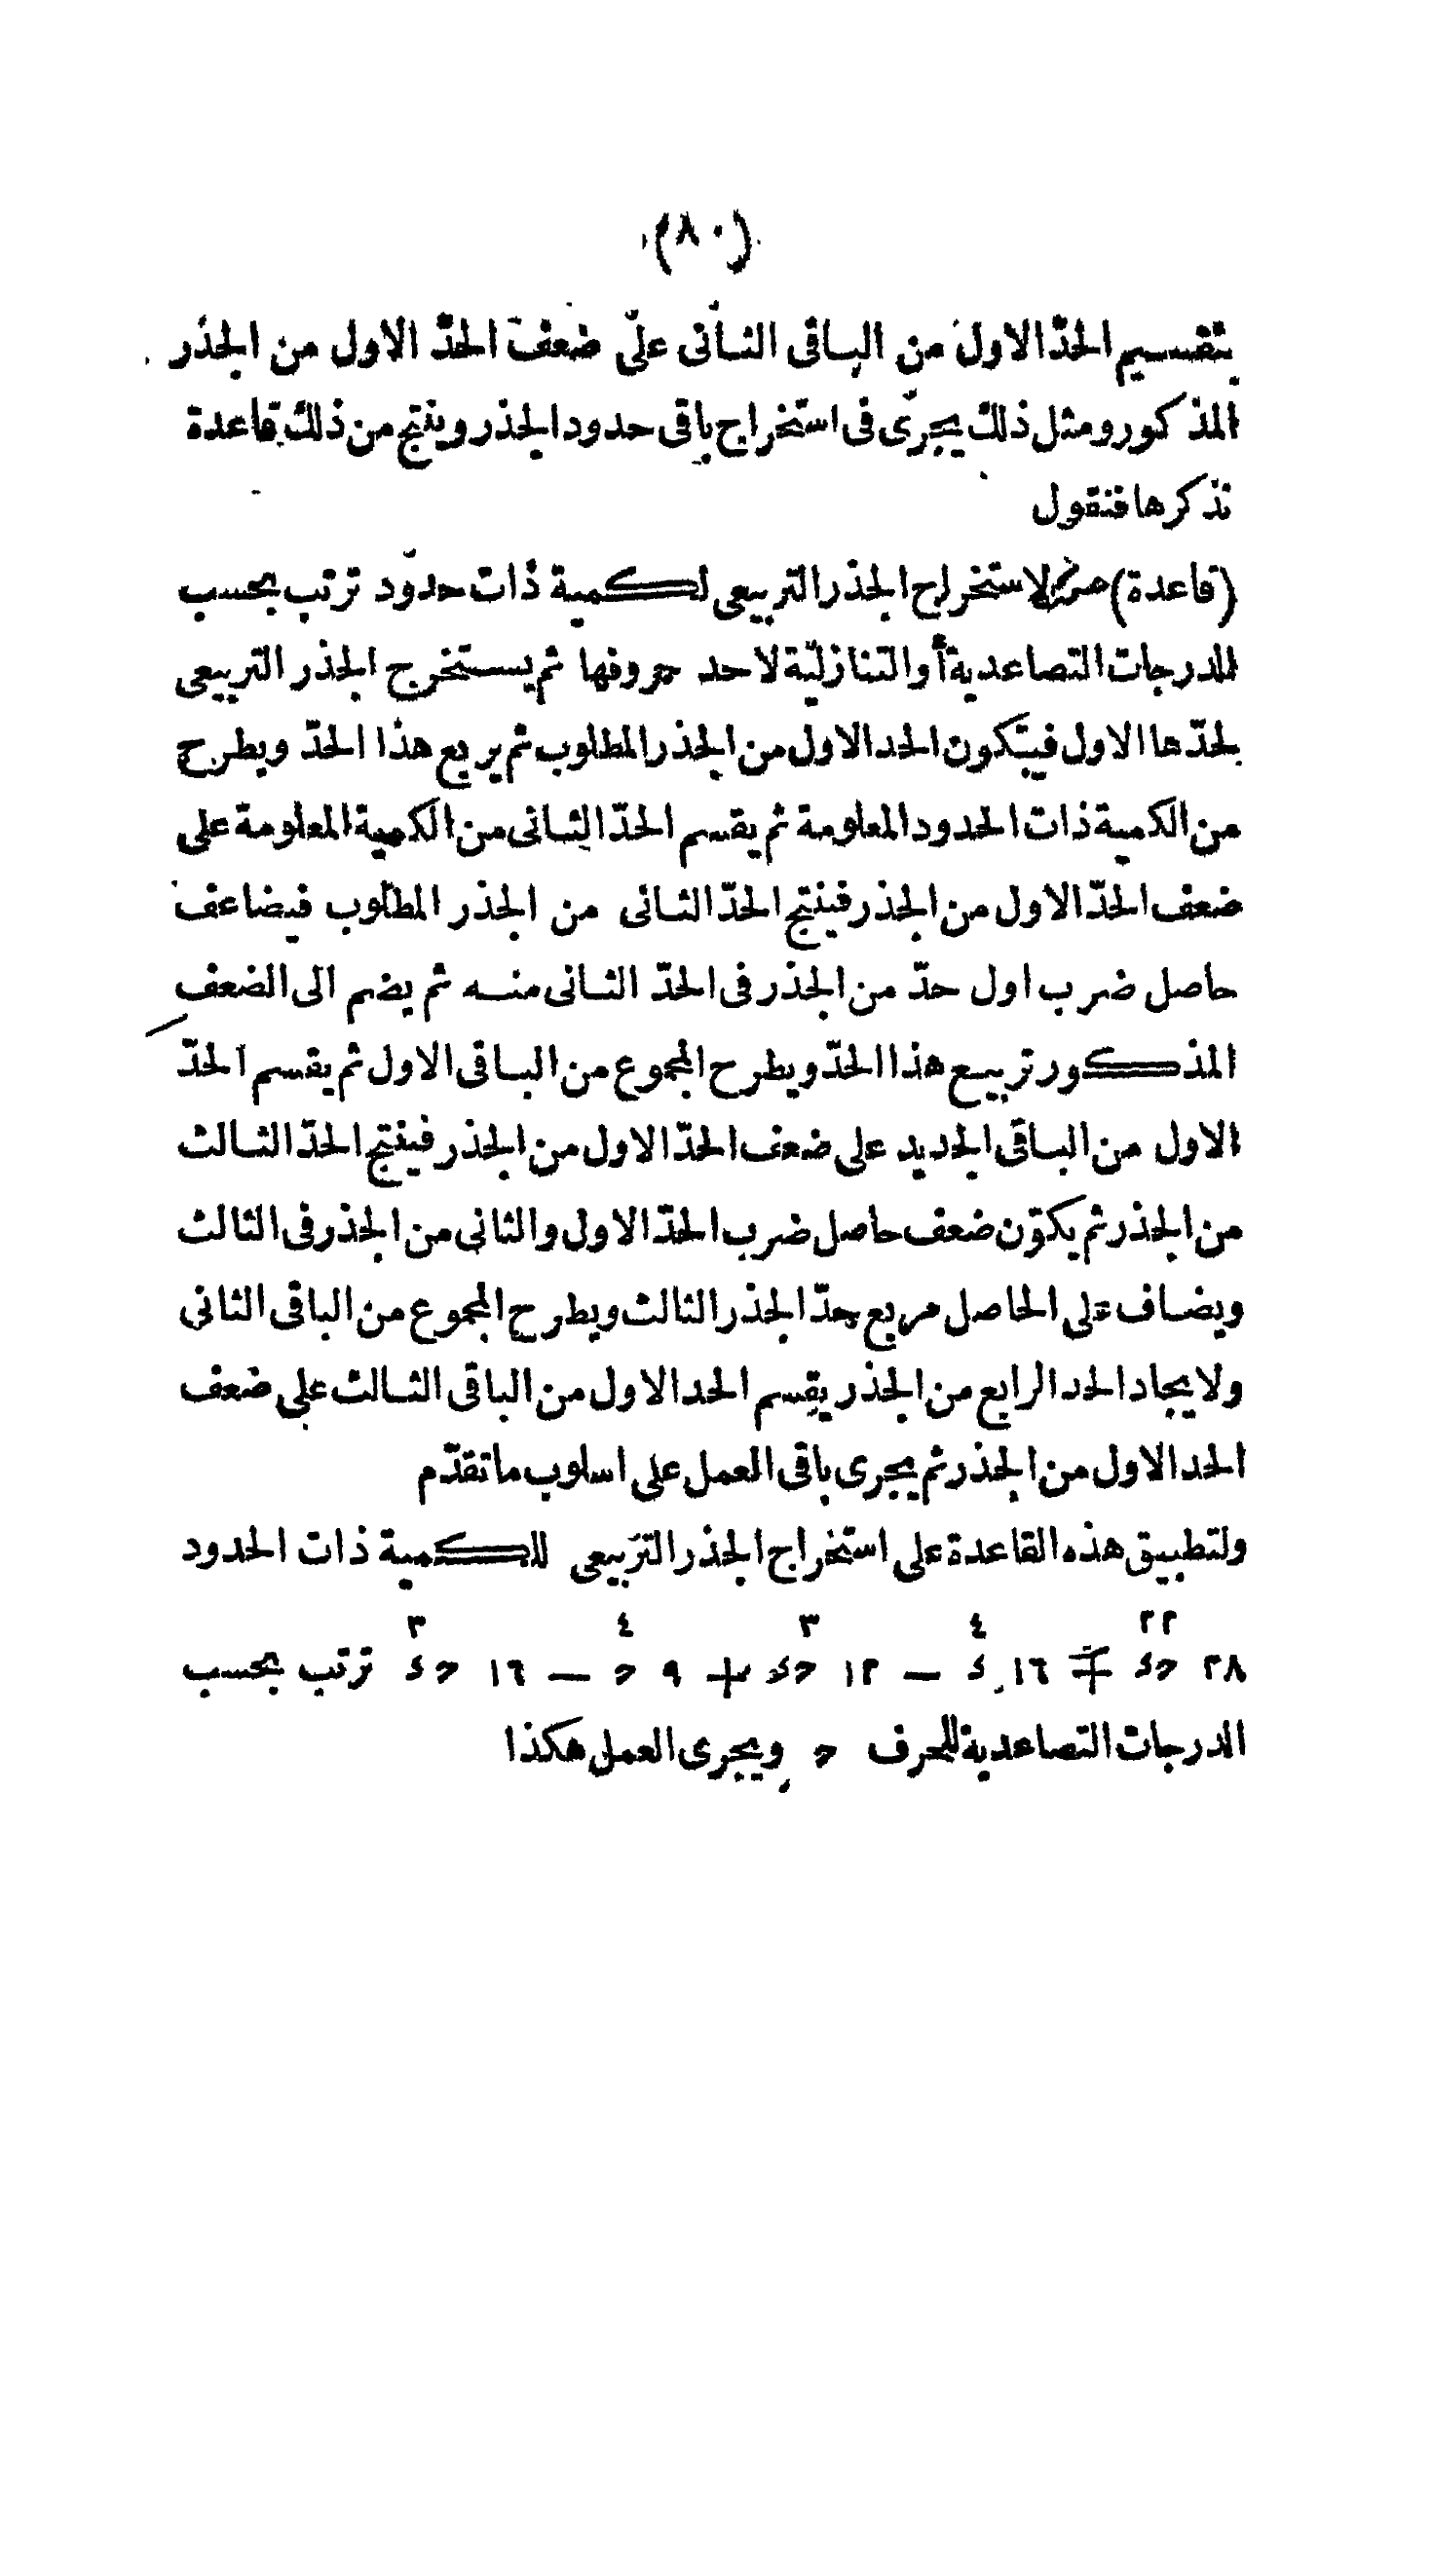 (٨٠)
بتقسيم الحدّ الاول من الباقى الثانى على ضعف الحدّ الاول من الجذر
المذكور ومثل ذلك يجرى فى استخراج باقى حدود الجذر وينتج من ذلك قاعدة
نذكرها فنقول
(قاعدة) لاستخراج الجذر التربيعى لكمية ذات حدود ترتب بحسب
الدرجات التصاعدية أو التنازلية لاحد حروفها ثم يستخرج الجذر التربيعى
لحدّها الاول فيتكون الحد الاول من الجذر المطلوب ثم يربع هذا الحدّ ويطرح
من الكمية ذات الحدود المعلومة ثم يقسم الحدّ الثانى من الكمية المعلومة على
ضعف الحدّ الاول من الجذر فينتج الحدّ الثانى من الجذر المطلوب فيضاعف
حاصل ضرب اول حدّ من الجذر فى الحدّ الثانى منه ثم يضم الى الضعف
المذكور تربيع هذا الحدّ ويطرح المجموع من الباقى الاول ثم يقسم الحدّ
الاول من الباقى الجديد على ضعف الحدّ الاول من الجذر فينتج الحدّ الثالث
من الجذر ثم يكوّن ضعف حاصل ضرب الحدّ الاول والثانى من الجذر فى الثالث
ويضاف على الحاصل مربع حدّ الجذر الثالث ويطرح المجموع من الباقى الثانى
ولايجاد الحد الرابع من الجذر يقسم الحد الاول من الباقى الثالث على ضعف
الحد الاول من الجذر ثم يجرى باقى العمل على اسلوب ما تقدّم
ولتطبيق هذه القاعدة على استخراج الجذر التربيعى للكمية ذات الحدود
٢٢ ٤ ٣ ٤ ٣
٢٨ حء + ١٦ ء — ١٢ حء + ٩ ح — ١٦ حء ترتب بحسب
الدرجات التصاعدية للحرف ح ويجرى العمل هكذا